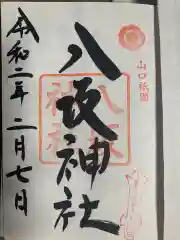 山口祇園
八坂神社
令和二年二月七日